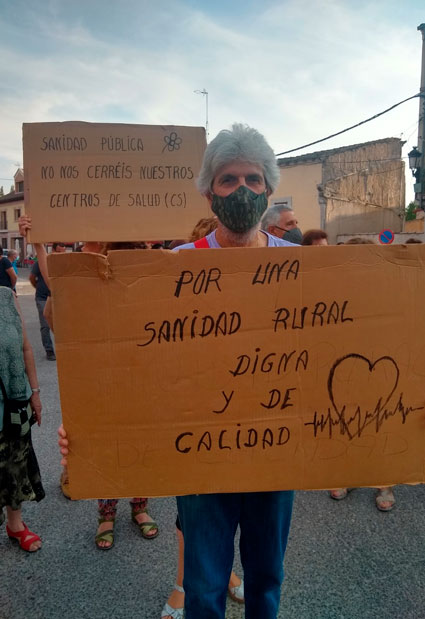 SANIDAD PÚBLICA
NO NOS CERRÉIS NUESTROS
CENTROS DE SALUD (CS)
POR UNA
SANIDAD RURAL
DIGNA
Y DE
CALIDAD